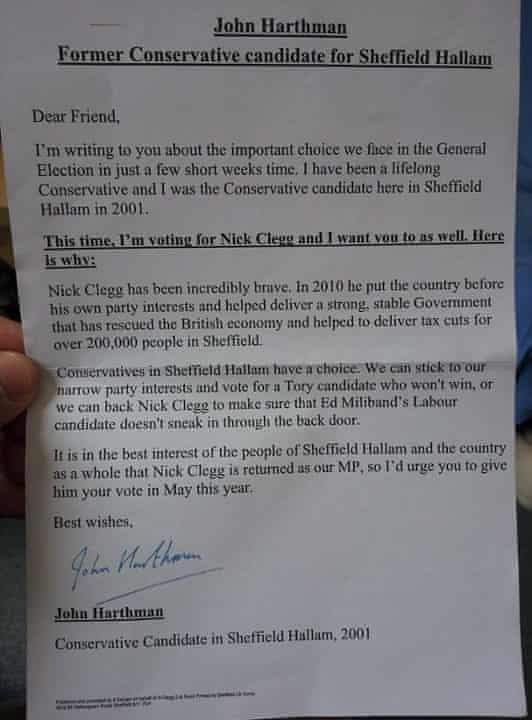 John Harthman
Former Conservative candidate for Sheffield Hallam
Dear Friend,
I'm writing to you about the important choice we face in the General
Election in just a few short weeks time. I have been a lifelong
Conservative and I was the Conservative candidate here in Sheffield
Hallam in 2001.
This time, I'm voting for Nick Clegg and I want you to as well. Here
is why:
Nick Clegg has been incredibly brave. In 2010 he put the country before
his own party interests and helped deliver a strong, stable Government
that has rescued the British economy and helped to deliver tax cuts for
over 200,000 people in Sheffield.
Conservatives in Sheffield Hallam have a choice. We can stick to our
narrow party interests and vote for a Tory candidate who won't win, or
we can back Nick Clegg to make sure that Ed Miliband's Labour
candidate doesn't sneak in through the back door.
It is in the best interest of the people of Sheffield Hallam and the country
as a whole that Nick Clegg is returned as our MP, so I'd urge you to give
him your vote in May this year.
Best wishes,
John Harthman
John Harthman
Conservative Candidate in Sheffield Hallam, 2001